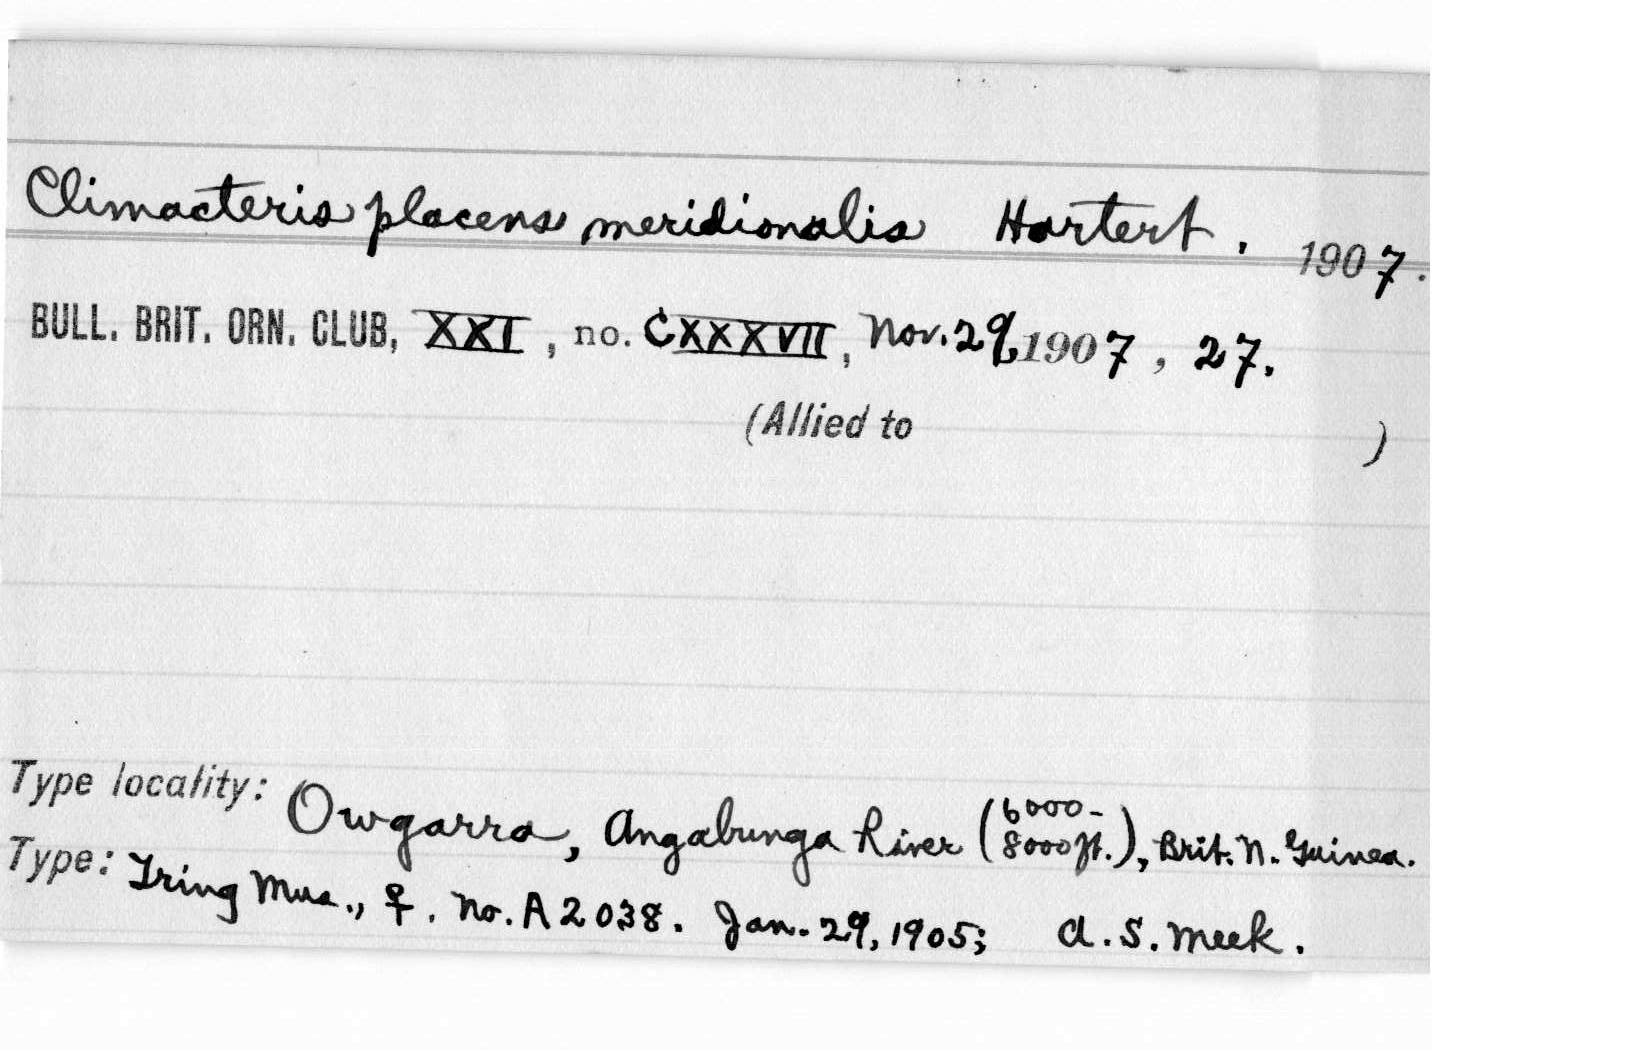 Climacteris placens meridionalis Hartert, 1907.
BULL. BRIT. ORN. CLUB, XXI, no. CXXXVII, Nov. 29, 1907, 27.
(Allied to )
Type locality: Owgarra, Angabunga River (6000-8000 ft.), Brit. N. Guinea.
Type: Tring Mus., ♀. No. A2038. Jan. 29, 1905; A. S. Meek.